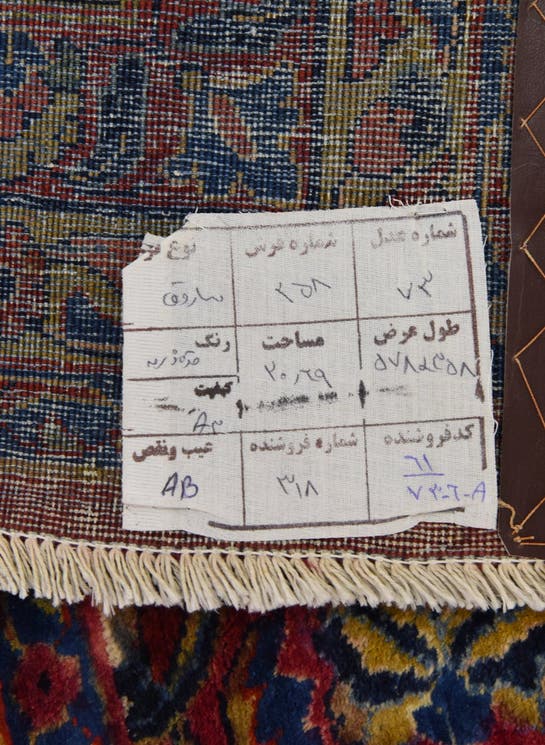 شماره عدل شماره فرش نوع فر
۷۳ ۳۵۸ ساروق
طول عرض مساحت رنگ
۵۷۸ ۳۵۸ ۲۰٫۶۹
کیفیت
A۳
کدفروشنده شماره فروشنده عیب ونقص
۶۱
۷۳-۶-A ۳۱۸ AB